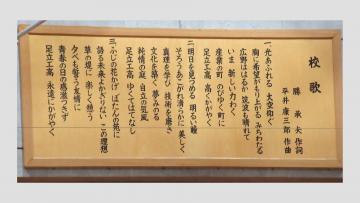 校歌
勝 承夫 作詞
平井康三郎 作曲
一 光あふれる 大空仰ぐ
胸に希望がもり上がる みちわたる
広野ははるか 筑波も晴れて
いま 新しい力わく
産業の町 のびゆく町に
足立工高 高くかがやく
二 明日を見つめる 明るい瞳
そろうあこがれ清らかに 美しく
真理を学び 技術を磨き
文化を築く 夢みのる
純情の庭 自立の気風
足立工高 ゆくてはてなし
三 ふじの花かげ ぼたんの苑に
語る未来よかぎりない この理想
草の堤に 楽しく憩う
夕べも誓う友情に
青春の日の感激つきず
足立工高 永遠にかがやく